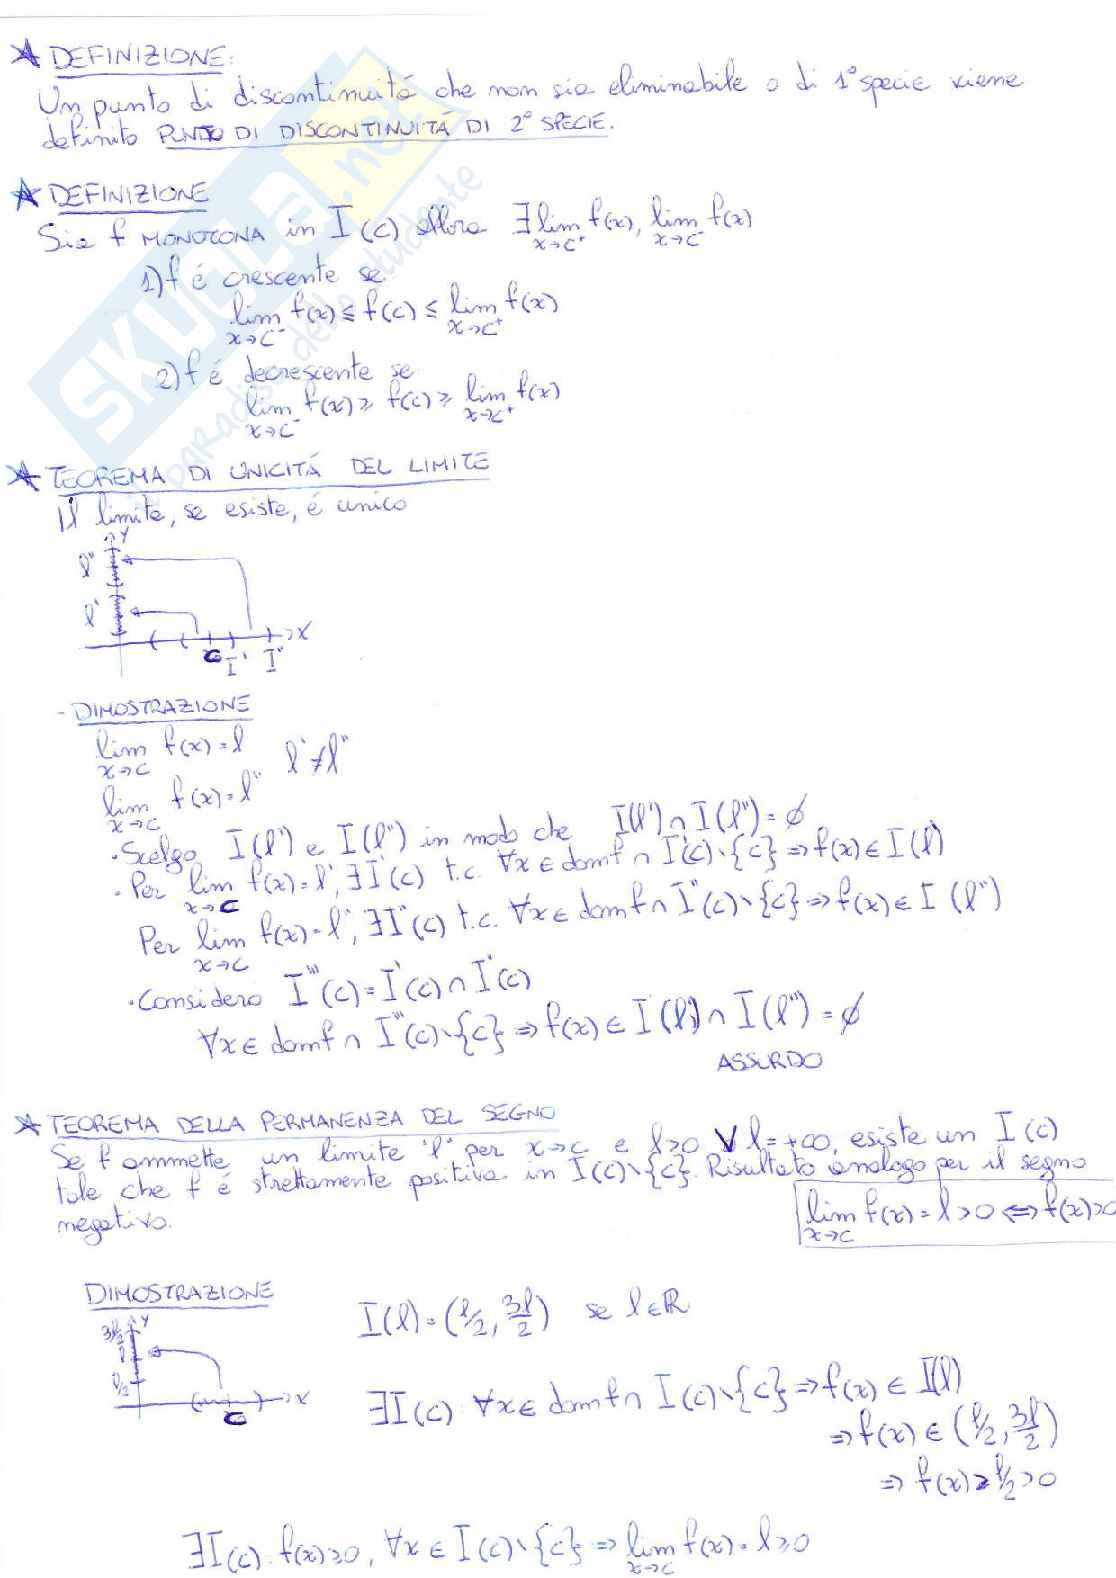 ★ DEFINIZIONE:
Un punto di discontinuitá che non sia eliminabile o di 1° specie viene
definito PUNTO DI DISCONTINUITÁ DI 2° SPECIE.
★ DEFINIZIONE
Sia f MONOTONA in I(c) allora ∃ lim x→c⁺ f(x), lim x→c⁻ f(x)
1) f é crescente se
lim x→c⁻ f(x) ≤ f(c) ≤ lim x→c⁺ f(x)
2) f é decrescente se
lim x→c⁻ f(x) ≥ f(c) ≥ lim x→c⁺ f(x)
★ TEOREMA DI UNICITÁ DEL LIMITE
Il limite, se esiste, é unico
y
l''
l'
x
c I' I''
- DIMOSTRAZIONE
lim x→c f(x) = l
l' ≠ l''
lim x→c f(x) = l''
· Scelgo I(l') e I(l'') in modo che I(l') ∩ I(l'') = ∅
· Per lim x→c f(x) = l', ∃ I'(c) t.c. ∀x ∈ domf ∩ I'(c)∖{c} ⇒ f(x) ∈ I(l')
Per lim x→c f(x) = l'', ∃ I''(c) t.c. ∀x ∈ domf ∩ I''(c)∖{c} ⇒ f(x) ∈ I (l'')
· Considero I'''(c) = I'(c) ∩ I'(c)
∀x ∈ domf ∩ I'''(c)∖{c} ⇒ f(x) ∈ I(l') ∩ I(l'') = ∅
ASSURDO
★ TEOREMA DELLA PERMANENZA DEL SEGNO
Se f ammette un limite "l" per x→c e l>0 ∨ l=+∞, esiste un I(c)
tale che f é strettamente positiva in I(c)∖{c}. Risultato analogo per il segno
negativo.
lim x→c f(x) = l > 0 ⇔ f(x) > 0
DIMOSTRAZIONE
y
3l/2
l
l/2
x
c
I(l) = (l/2, 3l/2) se l ∈ ℝ
∃I(c) ∀x ∈ domf ∩ I(c)∖{c} ⇒ f(x) ∈ I(l)
⇒ f(x) ∈ (l/2, 3l/2)
⇒ f(x) > l/2 > 0
∃I(c). f(x) ≥ 0, ∀x ∈ I(c)∖{c} ⇒ lim x→c f(x) = l ≥ 0
SKUOLA.net
il paradiso dello studente